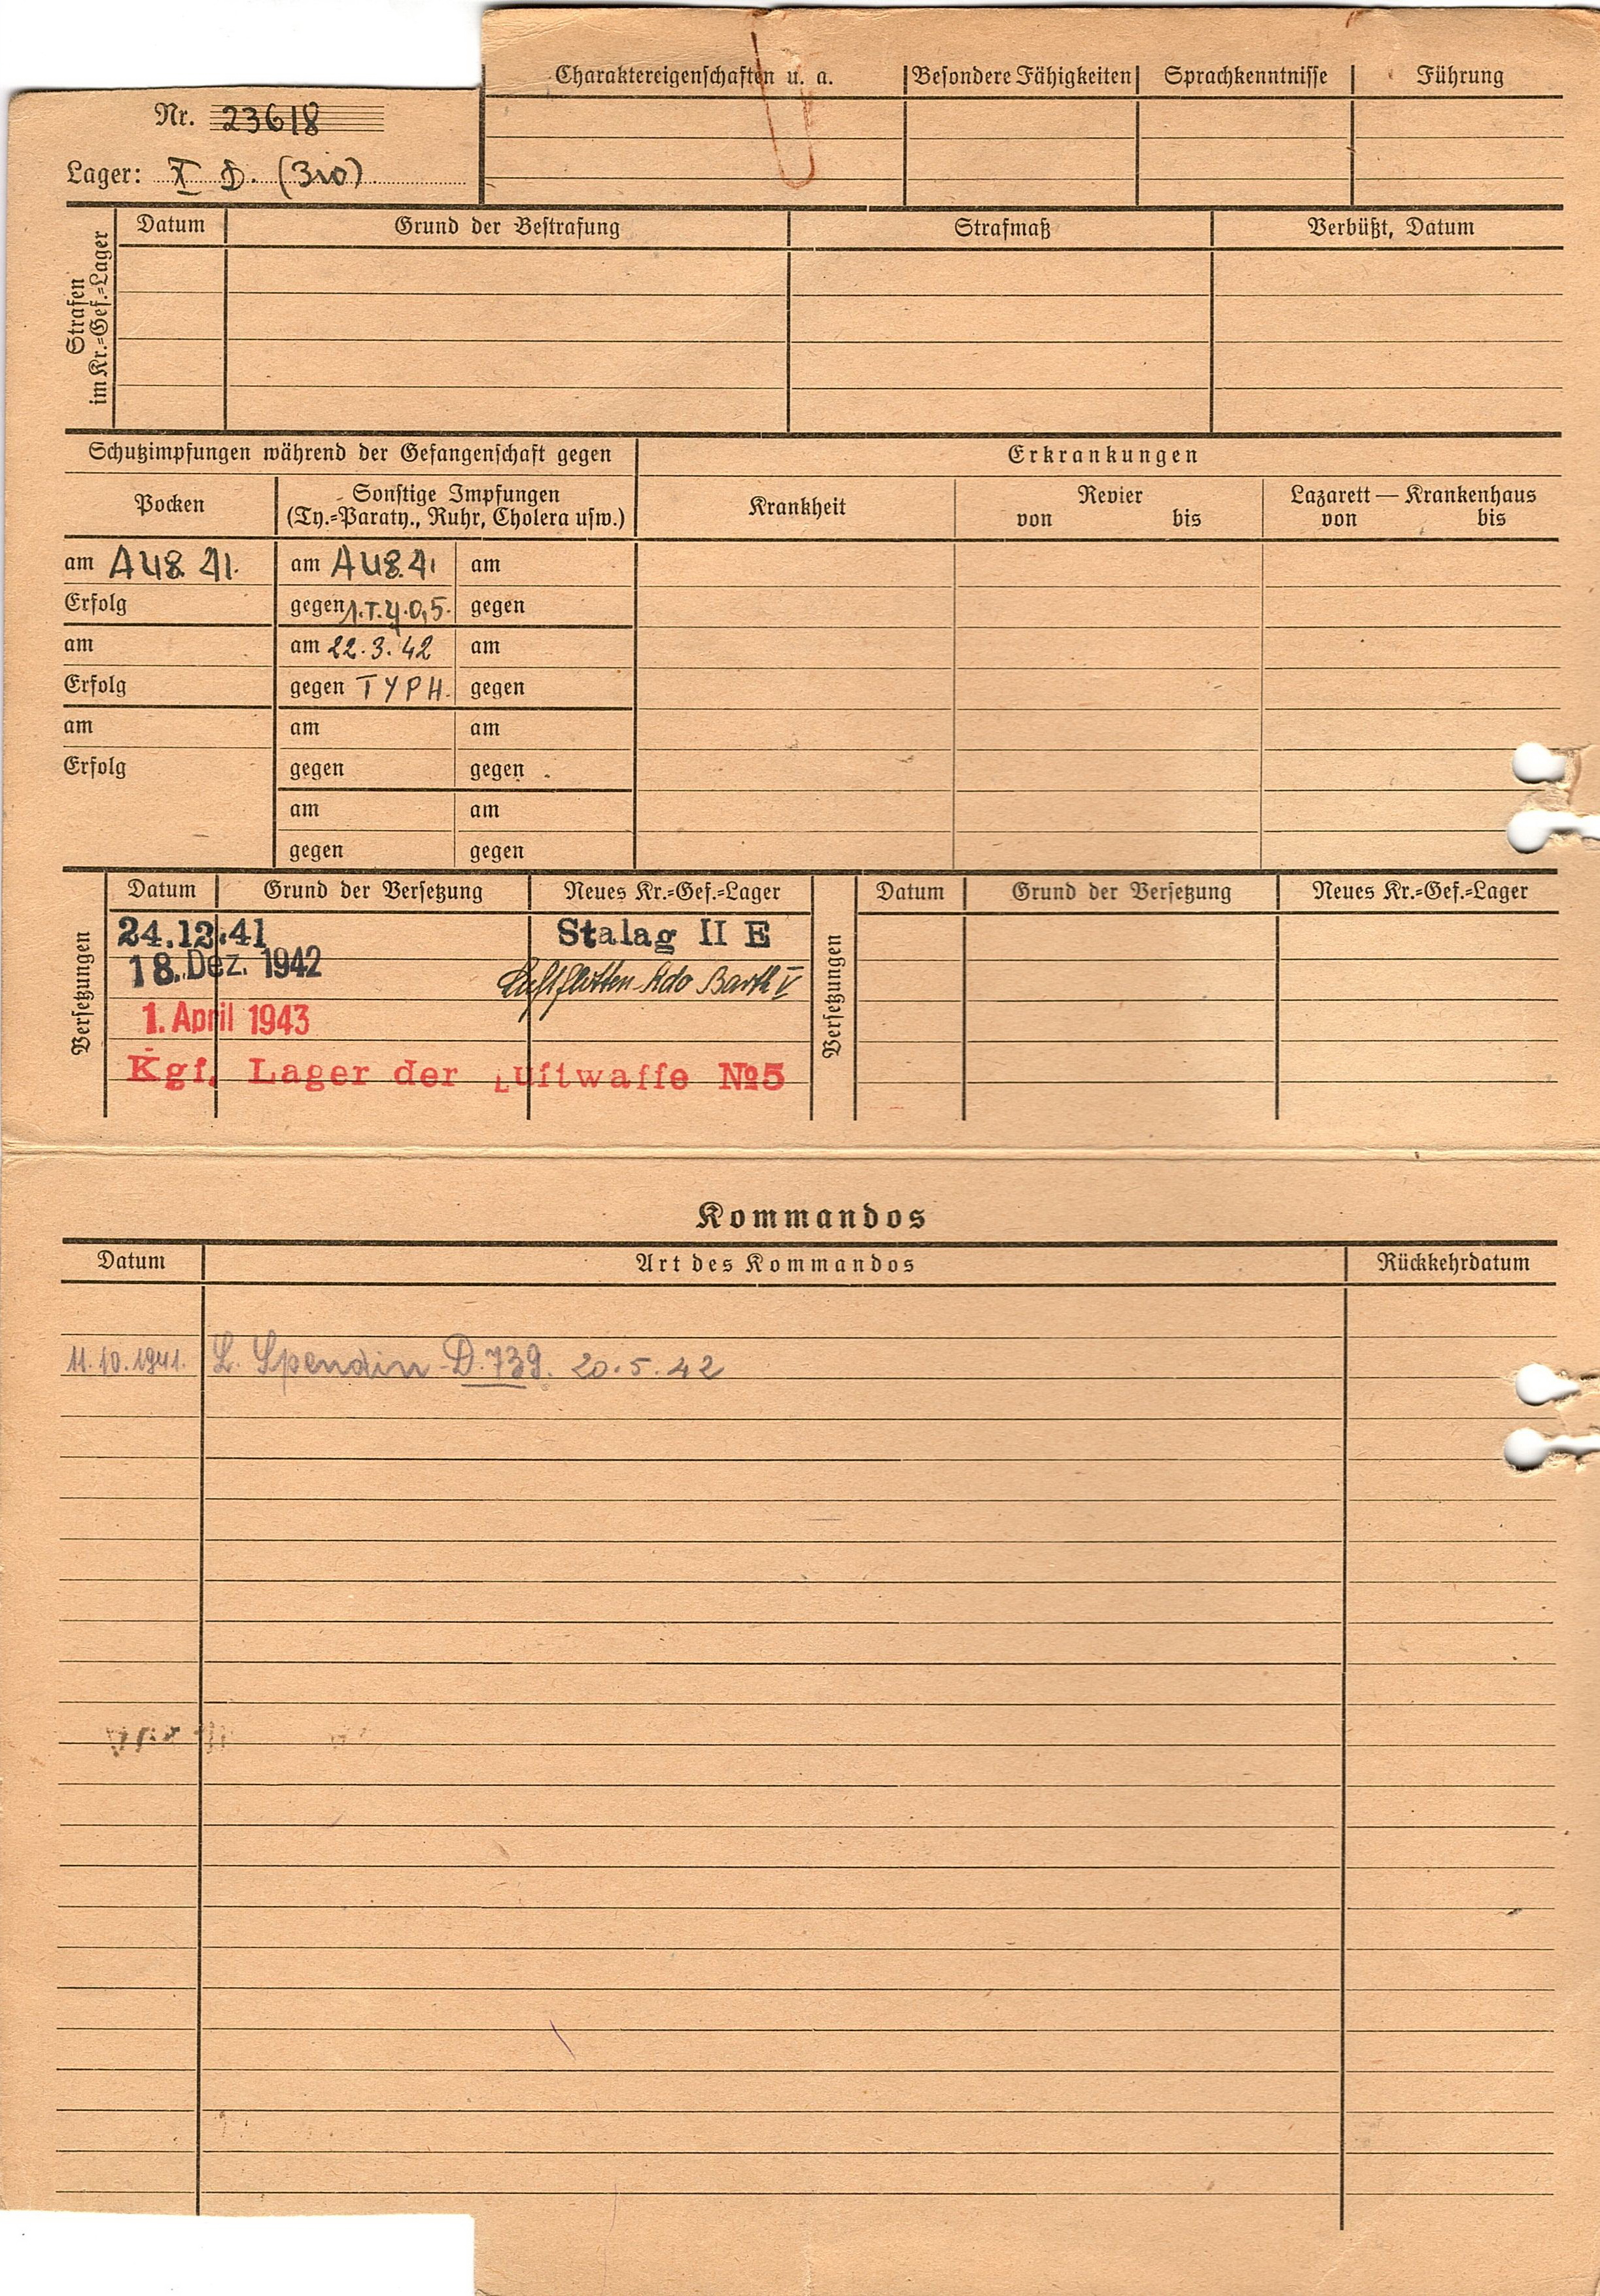 Charaktereigenschaften u. a. Besondere Fähigkeiten Sprachkenntnisse Führung
Nr. 23618
Lager: X D. (310)
Strafen im Kr.=Gef.=Lager
Datum Grund der Bestrafung Strafmaß Verbüßt, Datum
Schutzimpfungen während der Gefangenschaft gegen Erkrankungen
Pocken Sonstige Impfungen Krankheit Revier Lazarett — Krankenhaus
(Ty.=Paraty., Ruhr, Cholera usw.) von bis von bis
am AUG. 41. am AUG. 41 am
Erfolg gegen 1.T.y.0,5. gegen
am am 22.3.42 am
Erfolg gegen TYPH. gegen
am am am
Erfolg gegen gegen
am am
gegen gegen
Versetzungen
Datum Grund der Versetzung Neues Kr.=Gef.=Lager
24.12.41 Stalag II E
18. Dez. 1942 Luftflotten-Kdo Barth V
1. April 1943
Kgf. Lager der Luftwaffe №5
Versetzungen
Datum Grund der Versetzung Neues Kr.=Gef.=Lager
Kommandos
Datum Art des Kommandos Rückkehrdatum
11.10.1941. L. Spendin D.739. 20.5.42